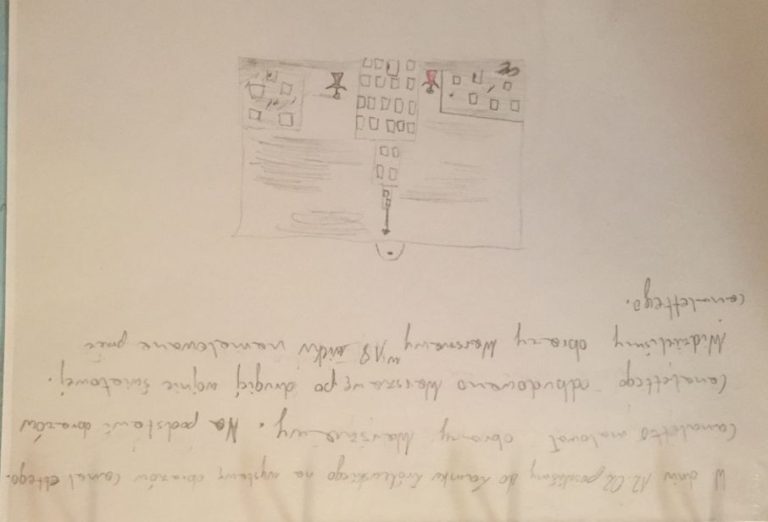 W dniu 12.02 poszliśmy do Zamku Królewskiego na wystawę obrazów Canalettego.
Canaletto malował obrazy Warszawy. Na podstawi obrazów
Canalettego odbudowano Warszawę po drugiej wojnie światowej.
Widzieliśmy obrazy Warszawy w 18 wieku namalowane przez
Canalettego.